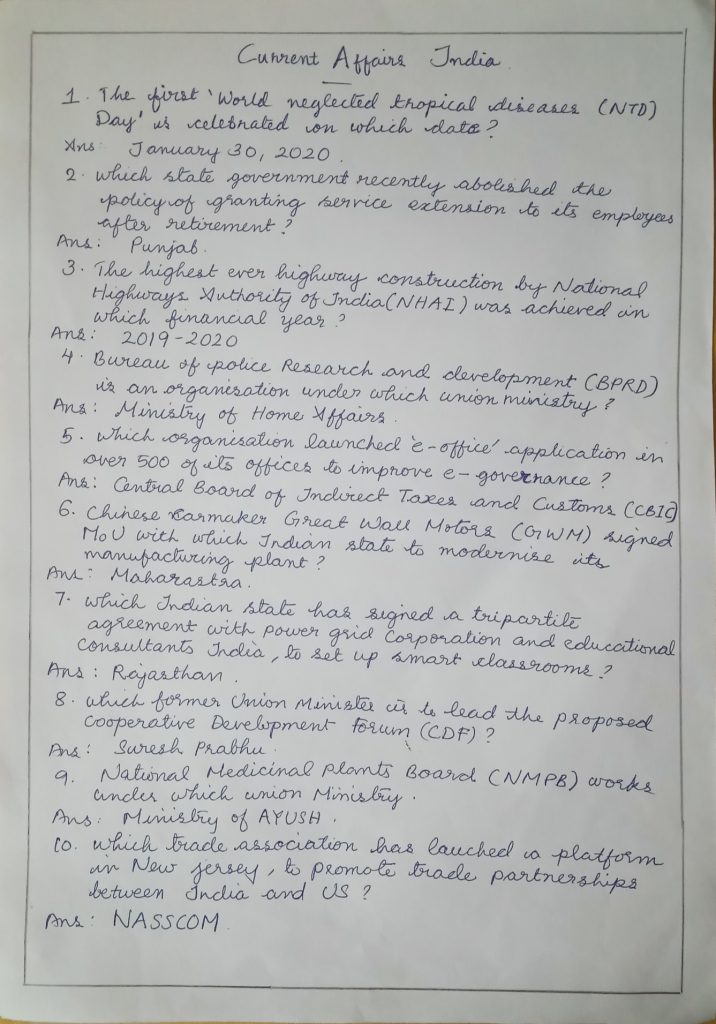 Current Affairs India
1. The first 'World neglected tropical diseases (NTD)
Day' is celebrated on which date?
Ans: January 30, 2020.
2. which state government recently abolished the
policy of granting service extension to its employees
after retirement?
Ans: Punjab.
3. The highest ever highway construction by National
Highways Authority of India(NHAI) was achieved in
which financial year?
Ans: 2019-2020
4. Bureau of police Research and development (BPRD)
is an organisation under which union ministry?
Ans: Ministry of Home Affairs.
5. which organisation launched 'e-office' application in
over 500 of its offices to improve e-governance?
Ans: Central Board of Indirect Taxes and Customs (CBIC)
6. Chinese carmaker Great Wall Motors (GWM) signed
MoU with which Indian state to modernise its
manufacturing plant?
Ans: Maharastra.
7. which Indian state has signed a tripartite
agreement with power grid Corporation and educational
consultants India, to set up smart classrooms?
Ans: Rajasthan.
8. which former Union Minister is to lead the proposed
Cooperative Development Forum (CDF)?
Ans: Suresh Prabhu.
9. National Medicinal Plants Board (NMPB) works
under which union Ministry.
Ans: Ministry of AYUSH.
10. which trade association has lauched a platform
in New jersey, to promote trade partnerships
between India and US?
Ans: NASSCOM.